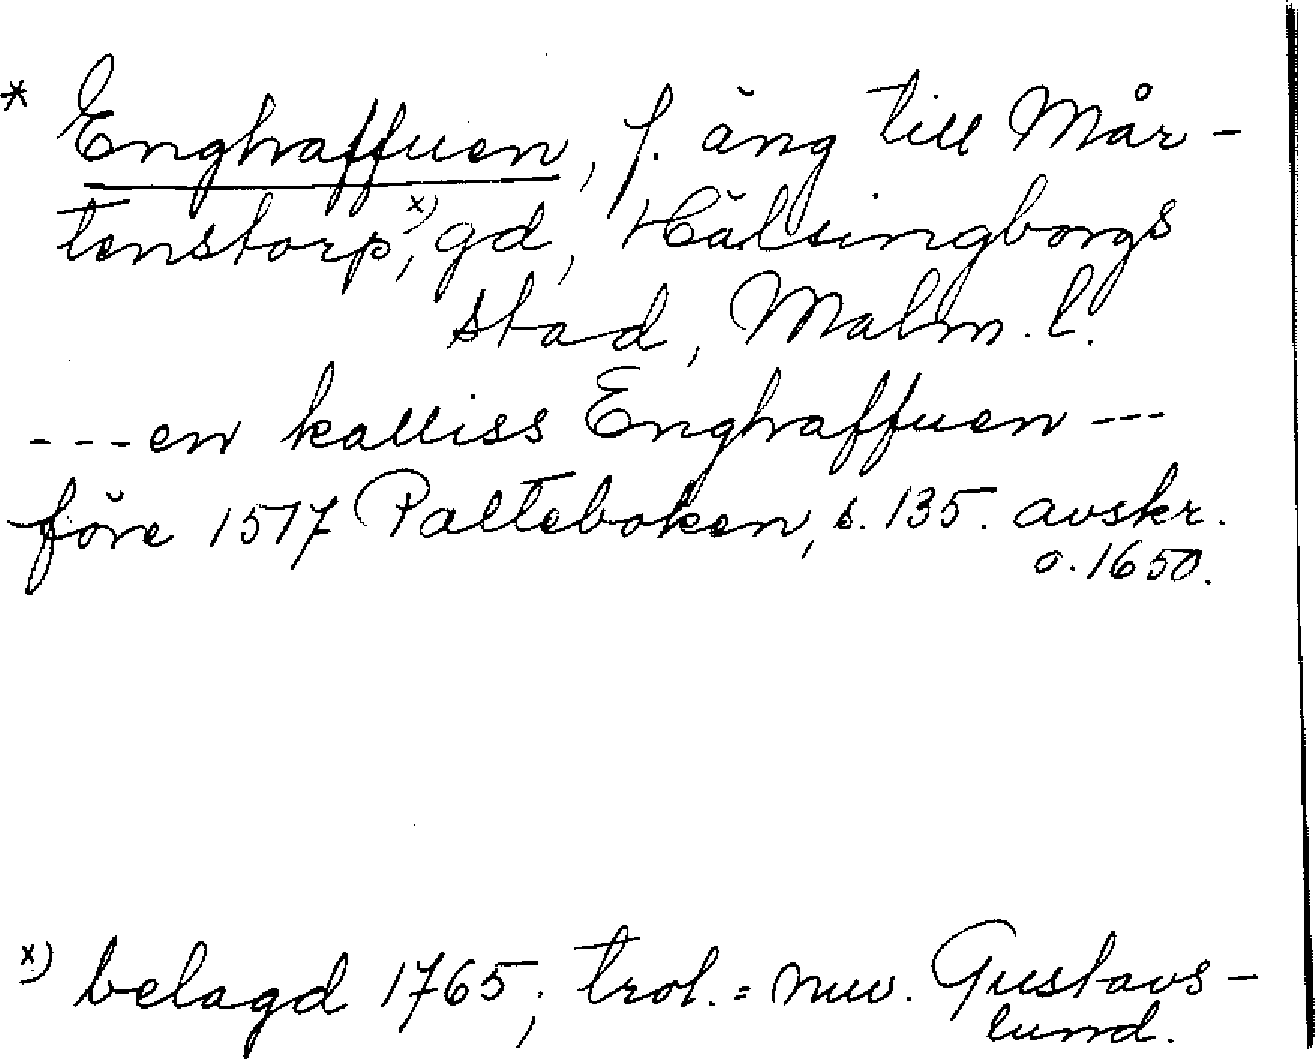 * Enghaffuen, f. äng till Mår-
tenstorp,x) gd, Hälsingborgs
stad, Malm. l.
---en kalliss Enghaffuen---
före 1517 Palteboken, s. 135. avskr.
o. 1650.
x) belagd 1765; trol. = nuv. Gustavs-
lund.